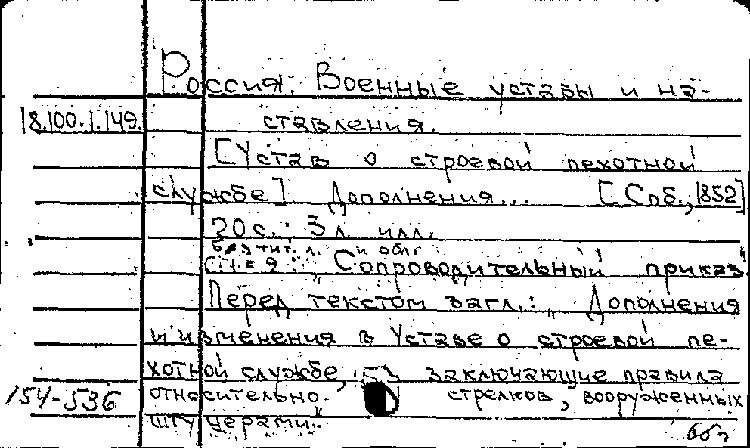 Россия. Военные уставы и на-
18.100.1.149. ставления.
[Устав о строевой пехотной
службе] Дополнения... [Спб., 1852]
20 с.; 3 л. илл.
без тит. л. и обл.
"Сопроводительный приказ".
Перед текстом загл.: "Дополнения
и изменения в Уставе о строевой пе-
хотной службе, заключающие правила
154-536 относительно стрелков, вооруженных
штуцерами".